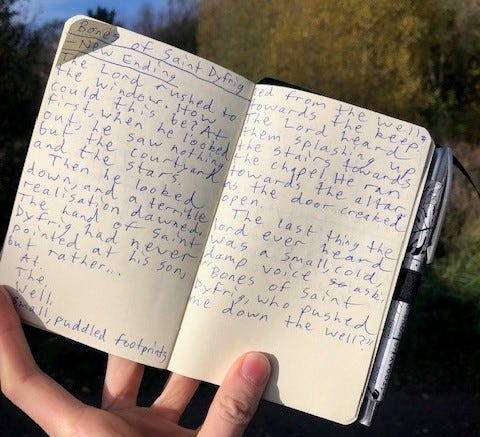 Bones of Saint Dyfrig
– New Ending
The Lord rushed to
the window. How
could this be? At
first, when he looked
out, he saw nothing
but the courtyard
and the stars.
Then he looked
down, and a terrible
realisation dawned.
The hand of Saint
Dyfrig had never
pointed at his son,
but rather...
At
The
Well.
Small, puddled footprints
led from the well,
towards the keep.
The Lord heard
them splashing up
the stairs towards
the chapel. He ran
towards the altar
as the door creaked
open.
The last thing the
lord ever heard
was a small, cold,
damp voice ask:
"Bones of Saint
Dyfrig, who pushed
me down the well?"